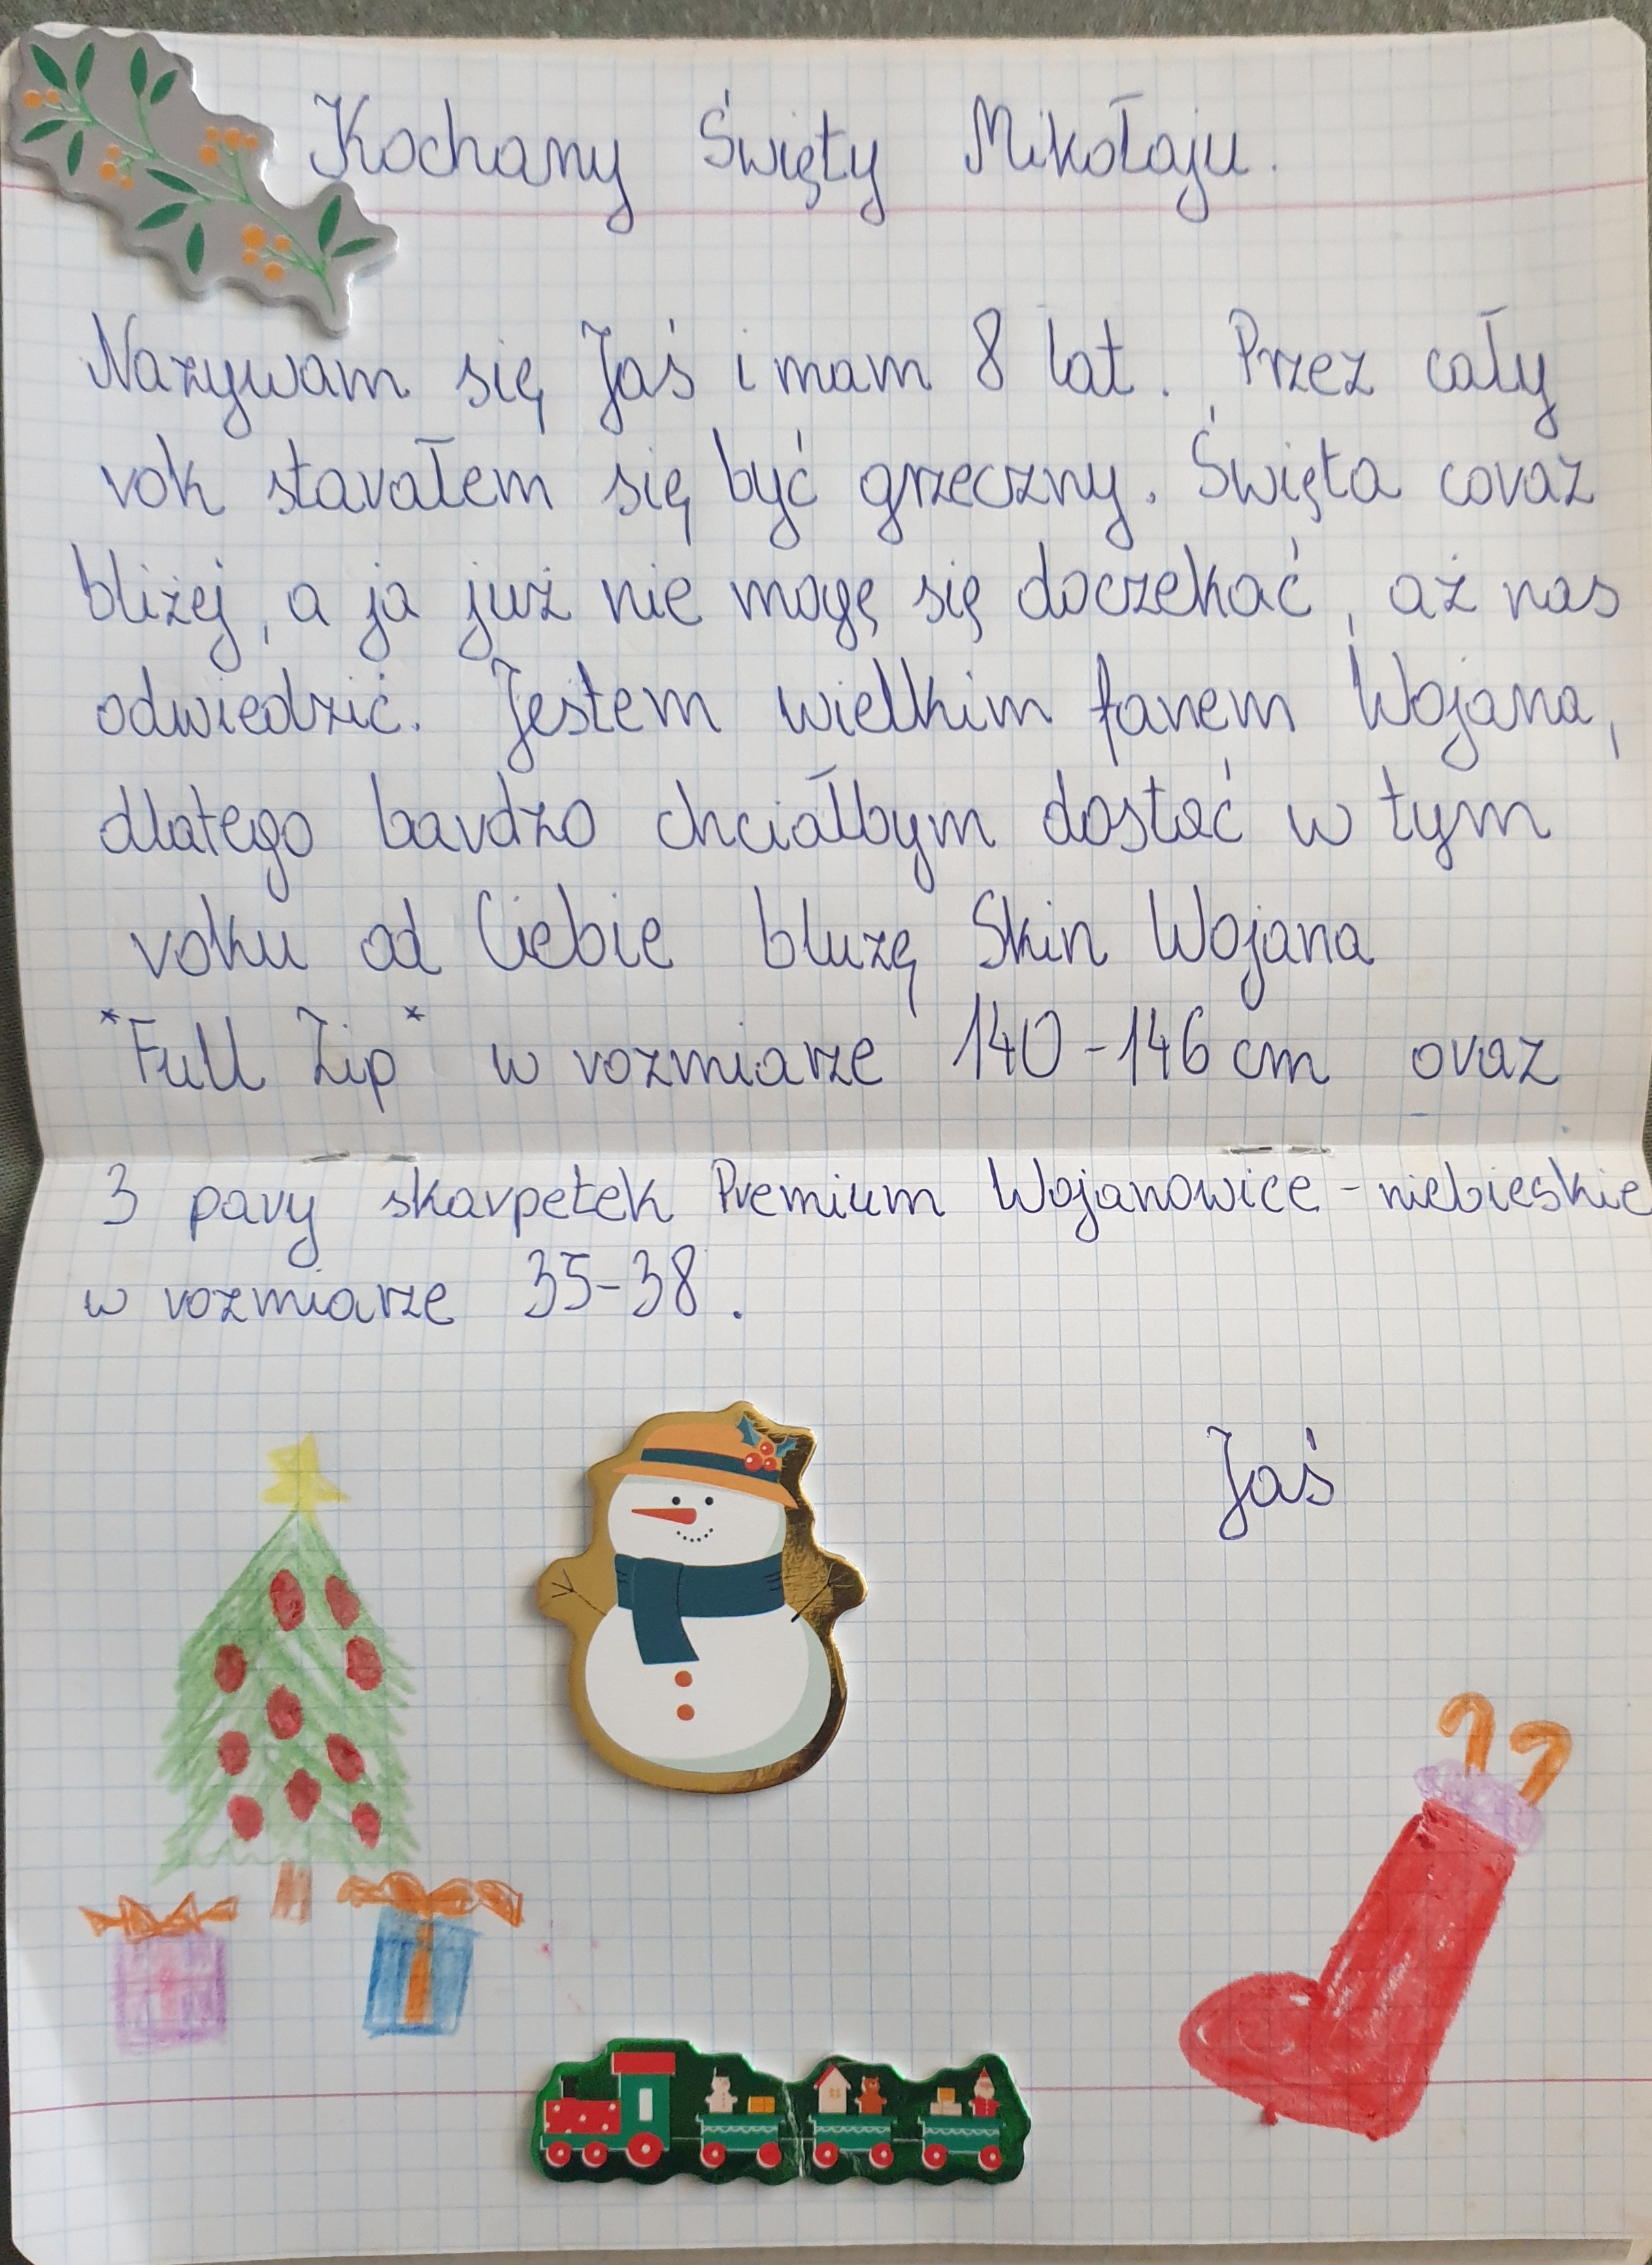 Kochany Święty Mikołaju.
Nazywam się Jaś i mam 8 lat. Przez cały
rok starałem się być grzeczny. Święta coraz
bliżej, a ja już nie mogę się doczekać, aż nas
odwiedzić. Jestem wielkim fanem Wojana,
dlatego bardzo chciałbym dostać w tym
roku od Ciebie bluzę Skin Wojana
*Full Zip* w rozmiarze 140-146 cm oraz
3 pary skarpetek Premium Wojanowice - niebieskie
w rozmiarze 35-38.
Jaś